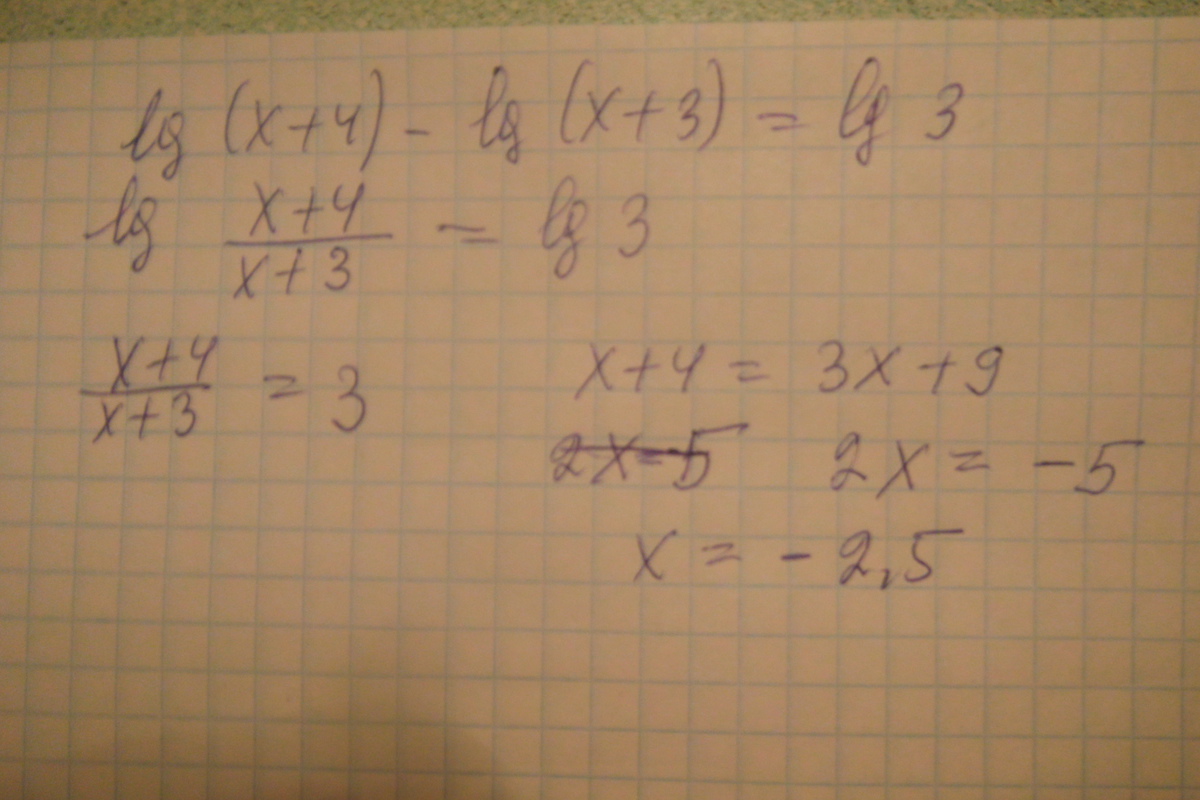 lg (x+4) - lg (x+3) = lg 3
lg (x+4)/(x+3) = lg 3
(x+4)/(x+3) = 3
x+4 = 3x+9
2x=5 2x = -5
x = -2,5